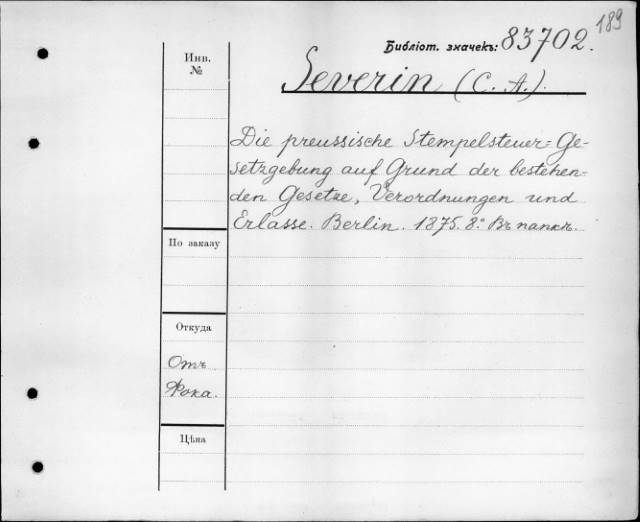 189
Библіот. значекъ: 83702.
Severin (C. A.).
Инв.
№
Die preussische Stempelsteuer=Ge-
setzgebung auf Grund der bestehen-
den Gesetze, Verordnungen und
Erlasse. Berlin. 1875. 8.° Въ папкѣ.
По заказу
Откуда
Отъ
Фока.
Цѣна